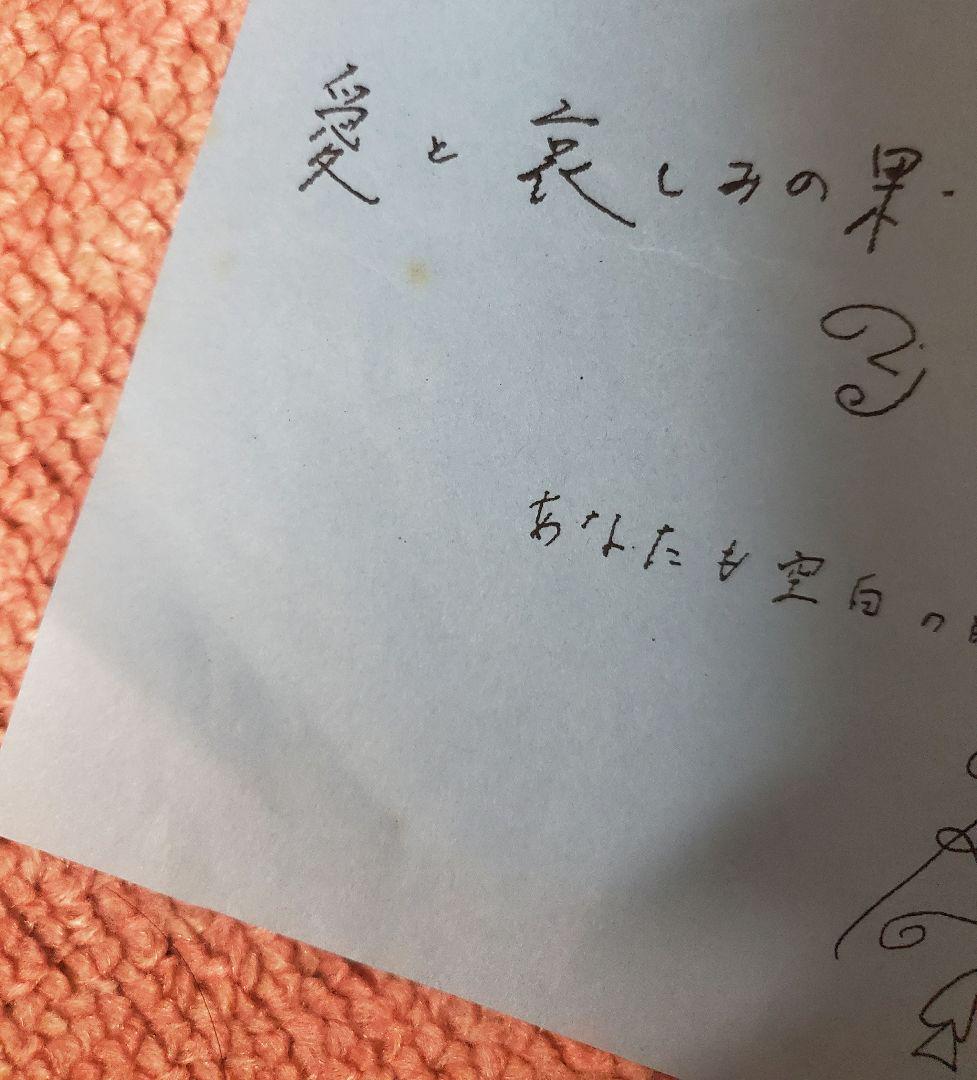 愛と哀しみの果
あなたも空白の